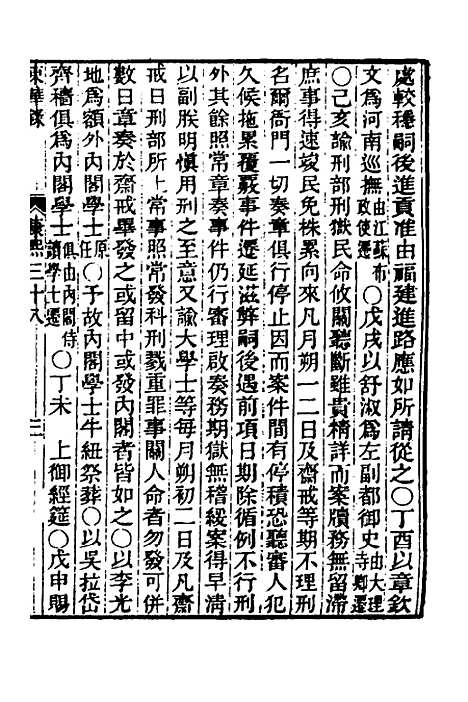 處較穩嗣後進貢准由福建進路應如所請從之〇丁酉以章欽
文為河南巡撫由江蘇布政使遷〇戊戌以舒淑為左副都御史由大理寺卿遷
〇己亥諭刑部刑獄民命攸關聽斷雖貴精詳而案牘務無留滯
庶事得速竣民免株累向來凡月朔一二日及齋戒等期不理刑
名爾衙門一切奏章俱行停止因而案件間有停積恐聽審人犯
久候拖累覆覈事件遷延滋弊嗣後遇前項日期除循例不行刑
外其餘照常章奏事件仍行審理啟奏務期獄無稽緩案得早清
以副朕明慎用刑之至意又諭大學士等每月朔初二日及凡齋
戒日刑部所上常事照常發科刑戮重罪事關人命者勿發可併
數日章奏於齋戒畢發之或留中或發內閣者皆如之〇以李光
地為額外內閣學士原任〇予故內閣學士牛紐祭葬〇以吳拉岱
齊穡俱為內閣學士俱由內閣侍讀學士遷〇丁未　上御經筵〇戊申賜
東華錄　康熙三十八　三